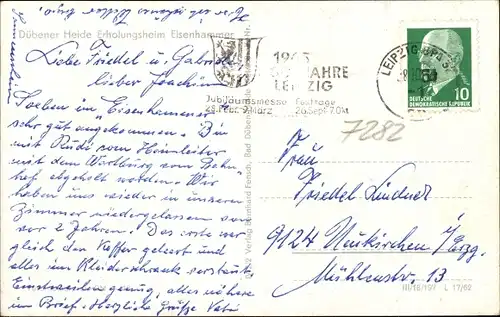 Dübener Heide Erholungsheim Eisenhammer
Liebe Friedel u. Gabriele
lieber Joachim
Soeben im Eisenhammer
sehr gut angekommen. Bin
mit Rudi vom Heimleiter
mit dem Wartburg vom Bahn
hof abgeholt worden. Wir
haben uns wieder in unseren
Zimmer niedergelassen von
vor 2 Jahren. Das erste war
gleich den Koffer geleert und
alles im Kleiderschrank verstaut
Einstweilen genug, alles nähere
im Brief. Herzliche Grüße Vati
1965
JAHRE
LEIPZIG
Jubiläumsmesse Festtage
28.Febr.-9.März 26.Sept.-7.Okt
LEIPZIG
DEUTSCHE
DEMOKRATISCHE REPUBLIK
10
7282
Frau
Friedel Lindner
9124 Neukirchen / Erzg.
Mühlenstr. 13
Verlag Bernhard Bad Düben
III/18/197 L 17/62